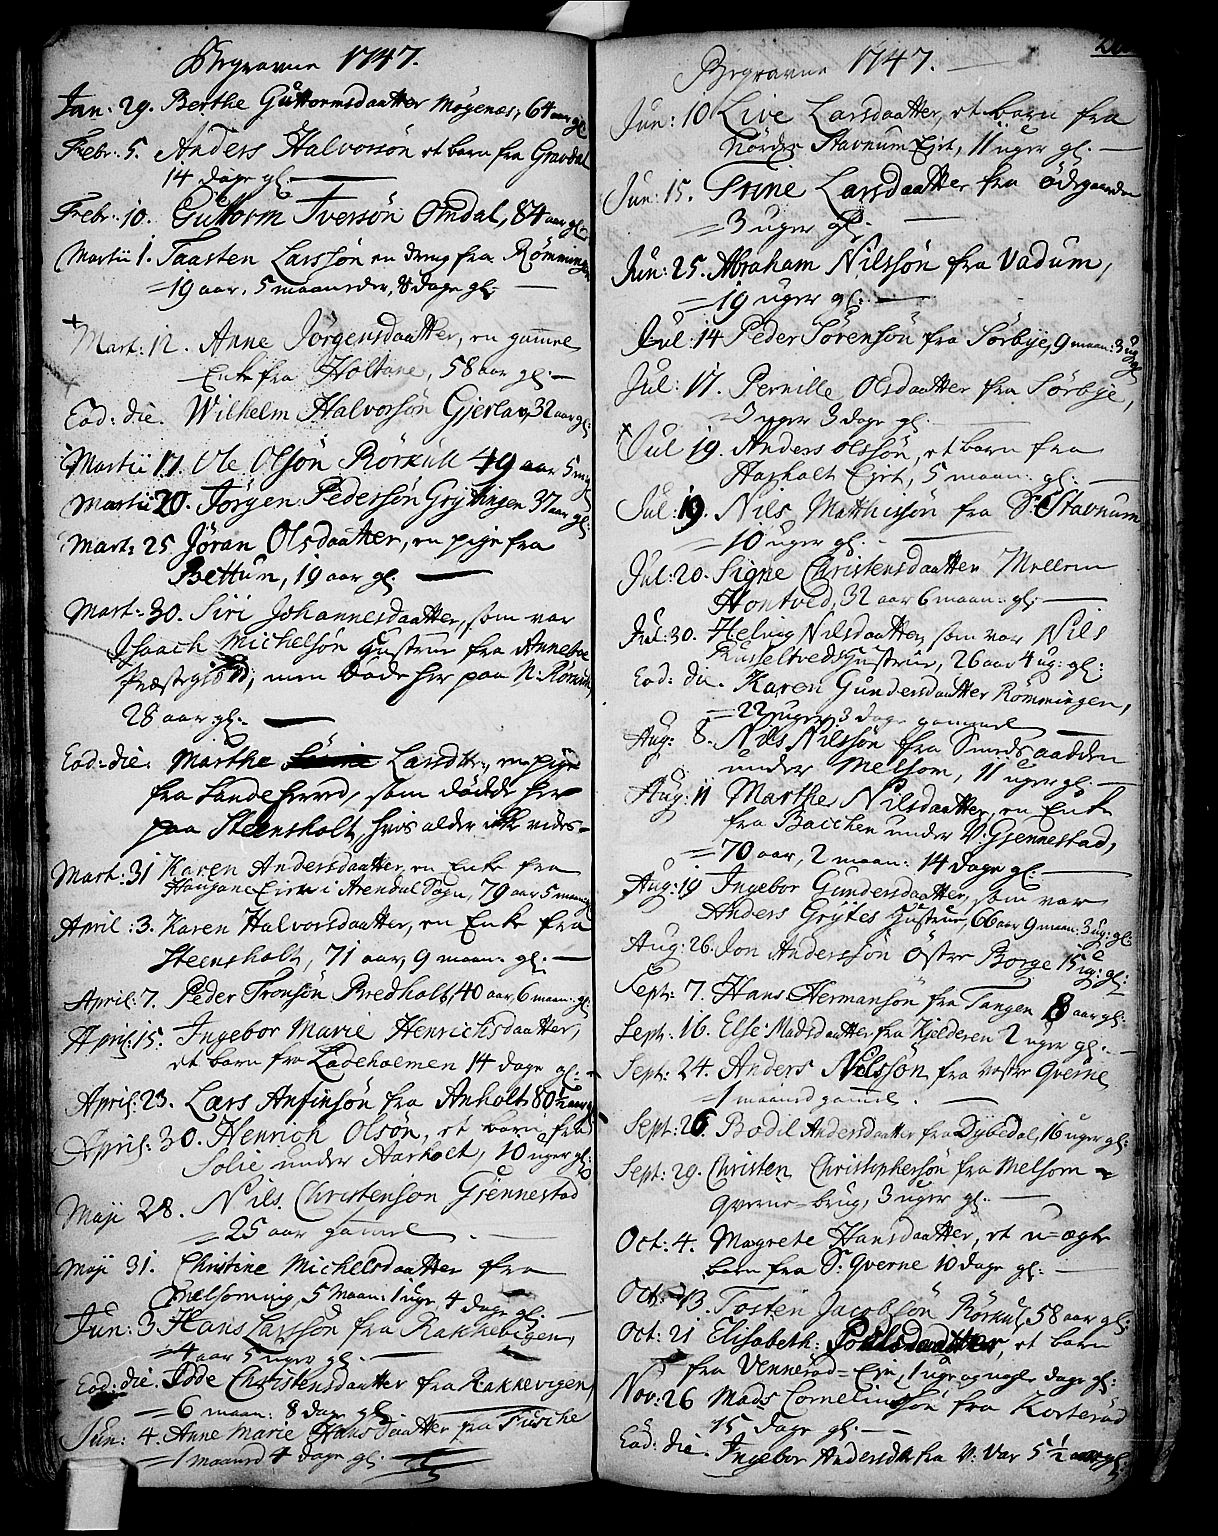 Begravne 1747.
Jan: 29. Berthe Guttormsdaatter Møgenæs, 64 aar gl:
Febr: 5. Anders Halvorsön et barn fra Gravdal
14 dage gl:
Febr: 10. Guttorm Iversön Omdal, 84 aar gl:
Martii 1. Taasten Larssön en dreng fra Römmingen
19 aar, 5 maaneder, 8 dage gl:
Mart: 12. Anne Jörgensdaatter, en gam̄el
Enke fra Holtane, 58 aar gl:
Ead: die. Wilhelm Halvorsön Gjerlav, 32 aar gl:
Martii 17. Ole Olsön Rörkull 49 aar 5
Martii 20. Jörgen Pedersön Grytingen 37 aar gl:
Mart: 25 Jöran Olsdaatter, en pige fra
Bettum, 19 aar gl:
Mart: 30. Siri Johannesdaatter, som var
Isaach Michelsön Hustrue fra
Præstegield, men döde her paa N: Römmin
28 aar gl:
Ead: die. Marthe Larsdtr, en pige
fra Sandeherred, som dödde her
paa Steensholt, hvis alder ikke vides
Mart: 31 Karen Andersdaatter, en Enke fra
Haugane Eie i Arendal Sogn, 79 aar 5 maan:
April: 3. Karen Halvorsdaatter, en Enke fra
Steensholt, 71 aar, 9 maan: gl:
April: 7. Peder Tronsön Bredholt, 40 aar, 6 maan: gl:
April: 15. Ingebor Marie Henrichsdaatter,
et barn fra Ladeholmen 14 dage gl:
April: 23. Lars Anfinsön fra Anholt 80½ aar
April: 30. Henrich Olsön, et barn fra
Solie under Aarholt, 10 uger gl:
Maji 28. Nils Christensön Gjennestad
25 aar gam̄el
Maji 31. Christine Michelsdaatter fra
Melsomvig, 5 maan: 1 uge, 4 dage gl:
Jun: 3 Hans Larssön fra Rakkevigen,
4 aar 5 uger gl:
Ead: die. Idde Christensdaatter fra Rakkevigen,
6 maan: 8 dage gl:
Jun: 4. Anne Marie Hansdaatter fra
1 maaned 4 dage gl:
Begravne 1747.
Jun: 10 Live Larsdaatter, et barn fra
Nördre Stavnum Eje, 11 uger gl:
Jun: 15. Trine Larsdaatter fra Ödegaarden
3 uger gl:
Jun: 25. Abraham Nilssön fra Vadum,
19 uger gl:
Jul: 14 Peder Sörensön fra Sörbye, 9 maan: 3 ug:
Jul: 17. Pernille Olsdaatter fra Sörbye,
3 uger 3 dage gl:
Jul 19. Anders Olssön, et barn fra
Haslholt Eje, 5 maan: gl:
Jul: 19. Nils Matthisön fra S: Stavnum
10 uger gl:
Jul: 20. Signe Christensdaatter Mellem
Hontved, 32 aar 6 maan: gl:
Jul: 30. Helvig Nilsdaatter, som var Nils
Russeltveds Hustrue, 26 aar 4 ug: gl:
Ead: die. Karen Gundersdaatter Römmingen,
22 uger, 3 dage gammel
Aug: 8. Nils Nilssön fra Smedsaadden
under Melsom, 11 uger gl:
Aug: 11 Marthe Nilsdaatter, en Enke
fra Bacchen under V: Gjennestad,
70 aar, 2 maan: 14 dage gl:
Aug: 19 Ingebor Gundersdaatter, som var
Anders Grytes Hustrue, 66 aar 9 maan: 3 ug: gl:
Aug: 26. Jon Anderssön Östre Borge 15 ug: gl:
Sept: 7. Hans Hermansön fra Tangen 8 aar gl:
Sept: 16. Else Madsdaatter fra Kjelderen 2 uger gl:
Sept: 24. Anders Nilssön fra Vestre Qverne
1 maaned gam̄el
Sept: 26. Bodil Andersdaatter fra Dybedal, 16 uger gl:
Sept: 29. Christen Christophersön fra Melsom
Qverne-brug, 3 uger gl:
Oct: 4. Magrete Hansdaatter, et u-ægte
barn fra S: Qverne 10 dage gl:
Oct: 13. Tosten Jacobsön Börkul, 58 aar gl:
Oct: 21 Elisabeth: Povelsdaatter, et barn
fra Vennerød-Eje, 1 uge og nogle dage gl:
Nov: 26 Mads Corneliusön fra Korterød
15 dage gl:
Ead: die. Ingebor Andersdtr fra V: Var 5½ aar gl: